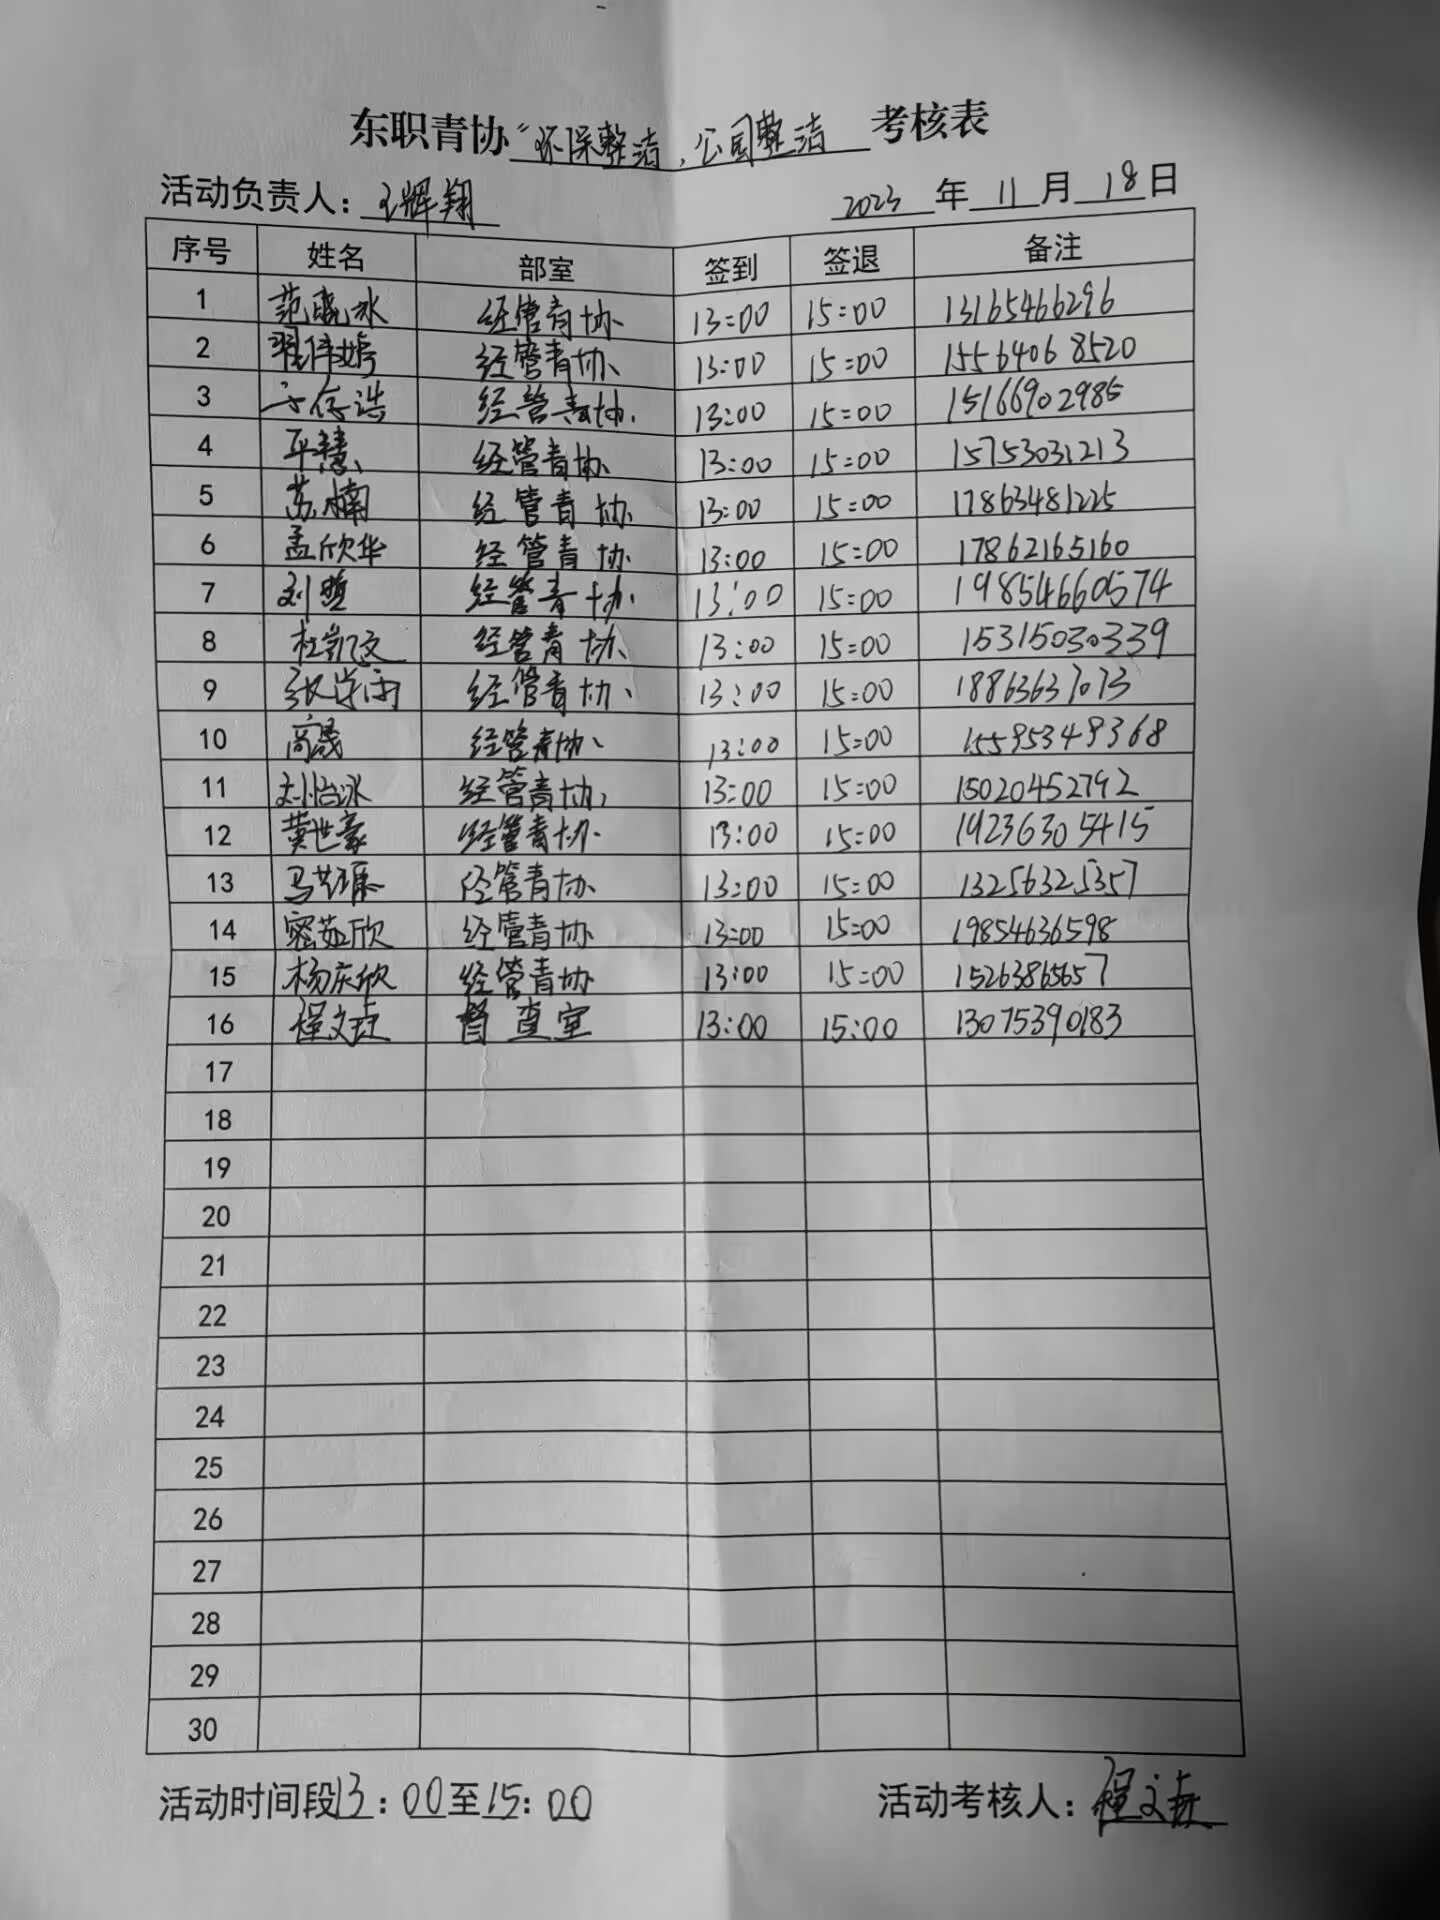 东职青协“环保整洁,公园整洁 考核表
活动负责人:王辉翔 2023 年 11 月 18 日
序号 姓名 部室 签到 签退 备注
1 范晓冰 经管青协 13:00 15:00 13165466296
2 翟伟婷 经管青协 13:00 15:00 15564068520
3 存浩 经管青协 13:00 15:00 15166902985
4 平慧 经管青协 13:00 15:00 15753031213
5 苏楠 经管青协 13:00 15:00 17863481225
6 孟欣华 经管青协 13:00 15:00 17862165160
7 刘 经管青协 13:00 15:00 198546660574
8 杜凯文 经管青协 13:00 15:00 15315030339
9 张 雨 经管青协 13:00 15:00 18863637073
10 高晟 经管青协 13:00 15:00 15595349368
11 刘怡冰 经管青协 13:00 15:00 15020452792
12 黄世豪 经管青协 13:00 15:00 19236305415
13 马 经管青协 13:00 15:00 13256325357
14 密茹欣 经管青协 13:00 15:00 19854636598
15 杨庆欣 经管青协 13:00 15:00 15263865657
16 程文 督查室 13:00 15:00 13075390183
17
18
19
20
21
22
23
24
25
26
27
28
29
30
活动时间段13:00至15:00 活动考核人:程文